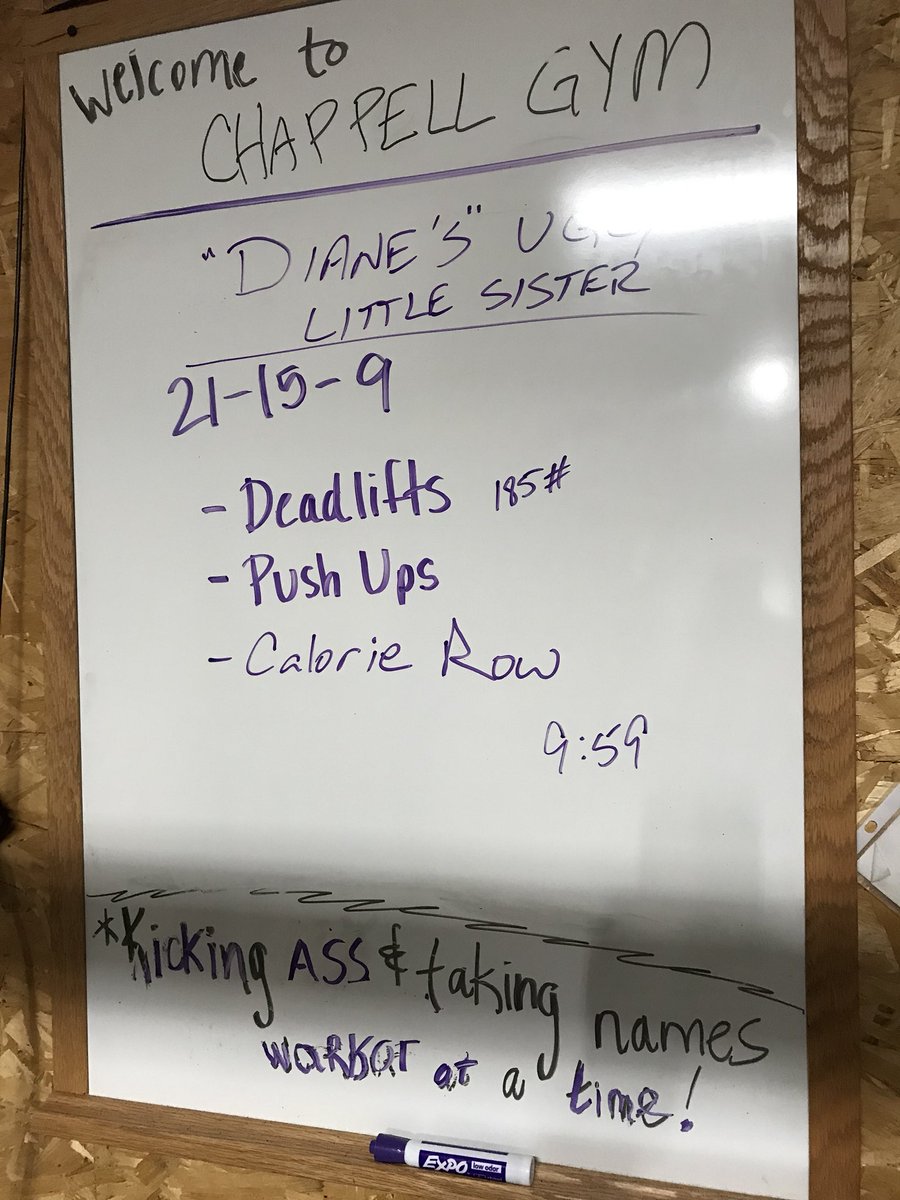 Welcome to
CHAPPELL GYM
"DIANE'S" UGLY
LITTLE SISTER
21-15-9
- Deadlifts 185#
- Push Ups
- Calorie Row
9:59
*Kicking ASS & taking names
at a time!
EXPO low odor